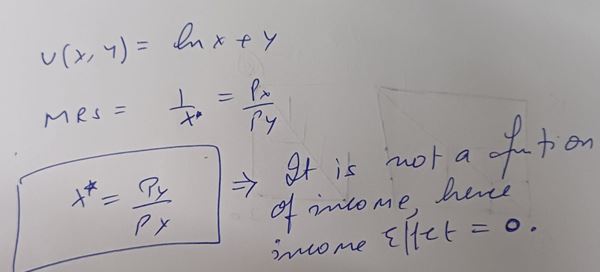 U(x, y) = ln x + y
MRS = 1/x* = Px/Py
x* = Py/Px ⇒ It is not a funtion
of income, hence
income Effect = 0.